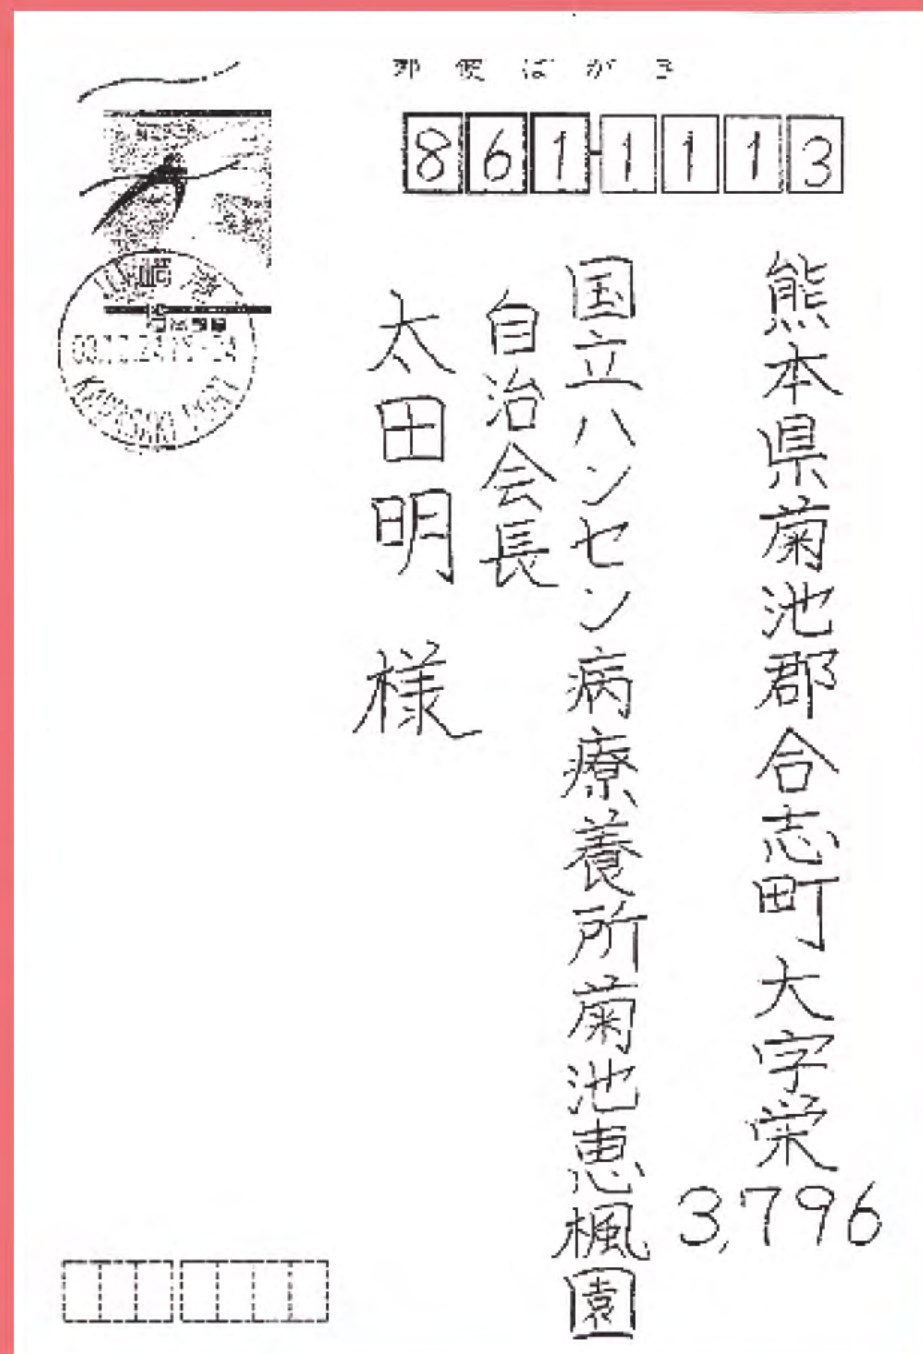 郵便はがき
861-1113
熊本県菊池郡合志町大字栄
3,796
国立ハンセン病療養所菊池恵楓園
自治会長
太田明 様